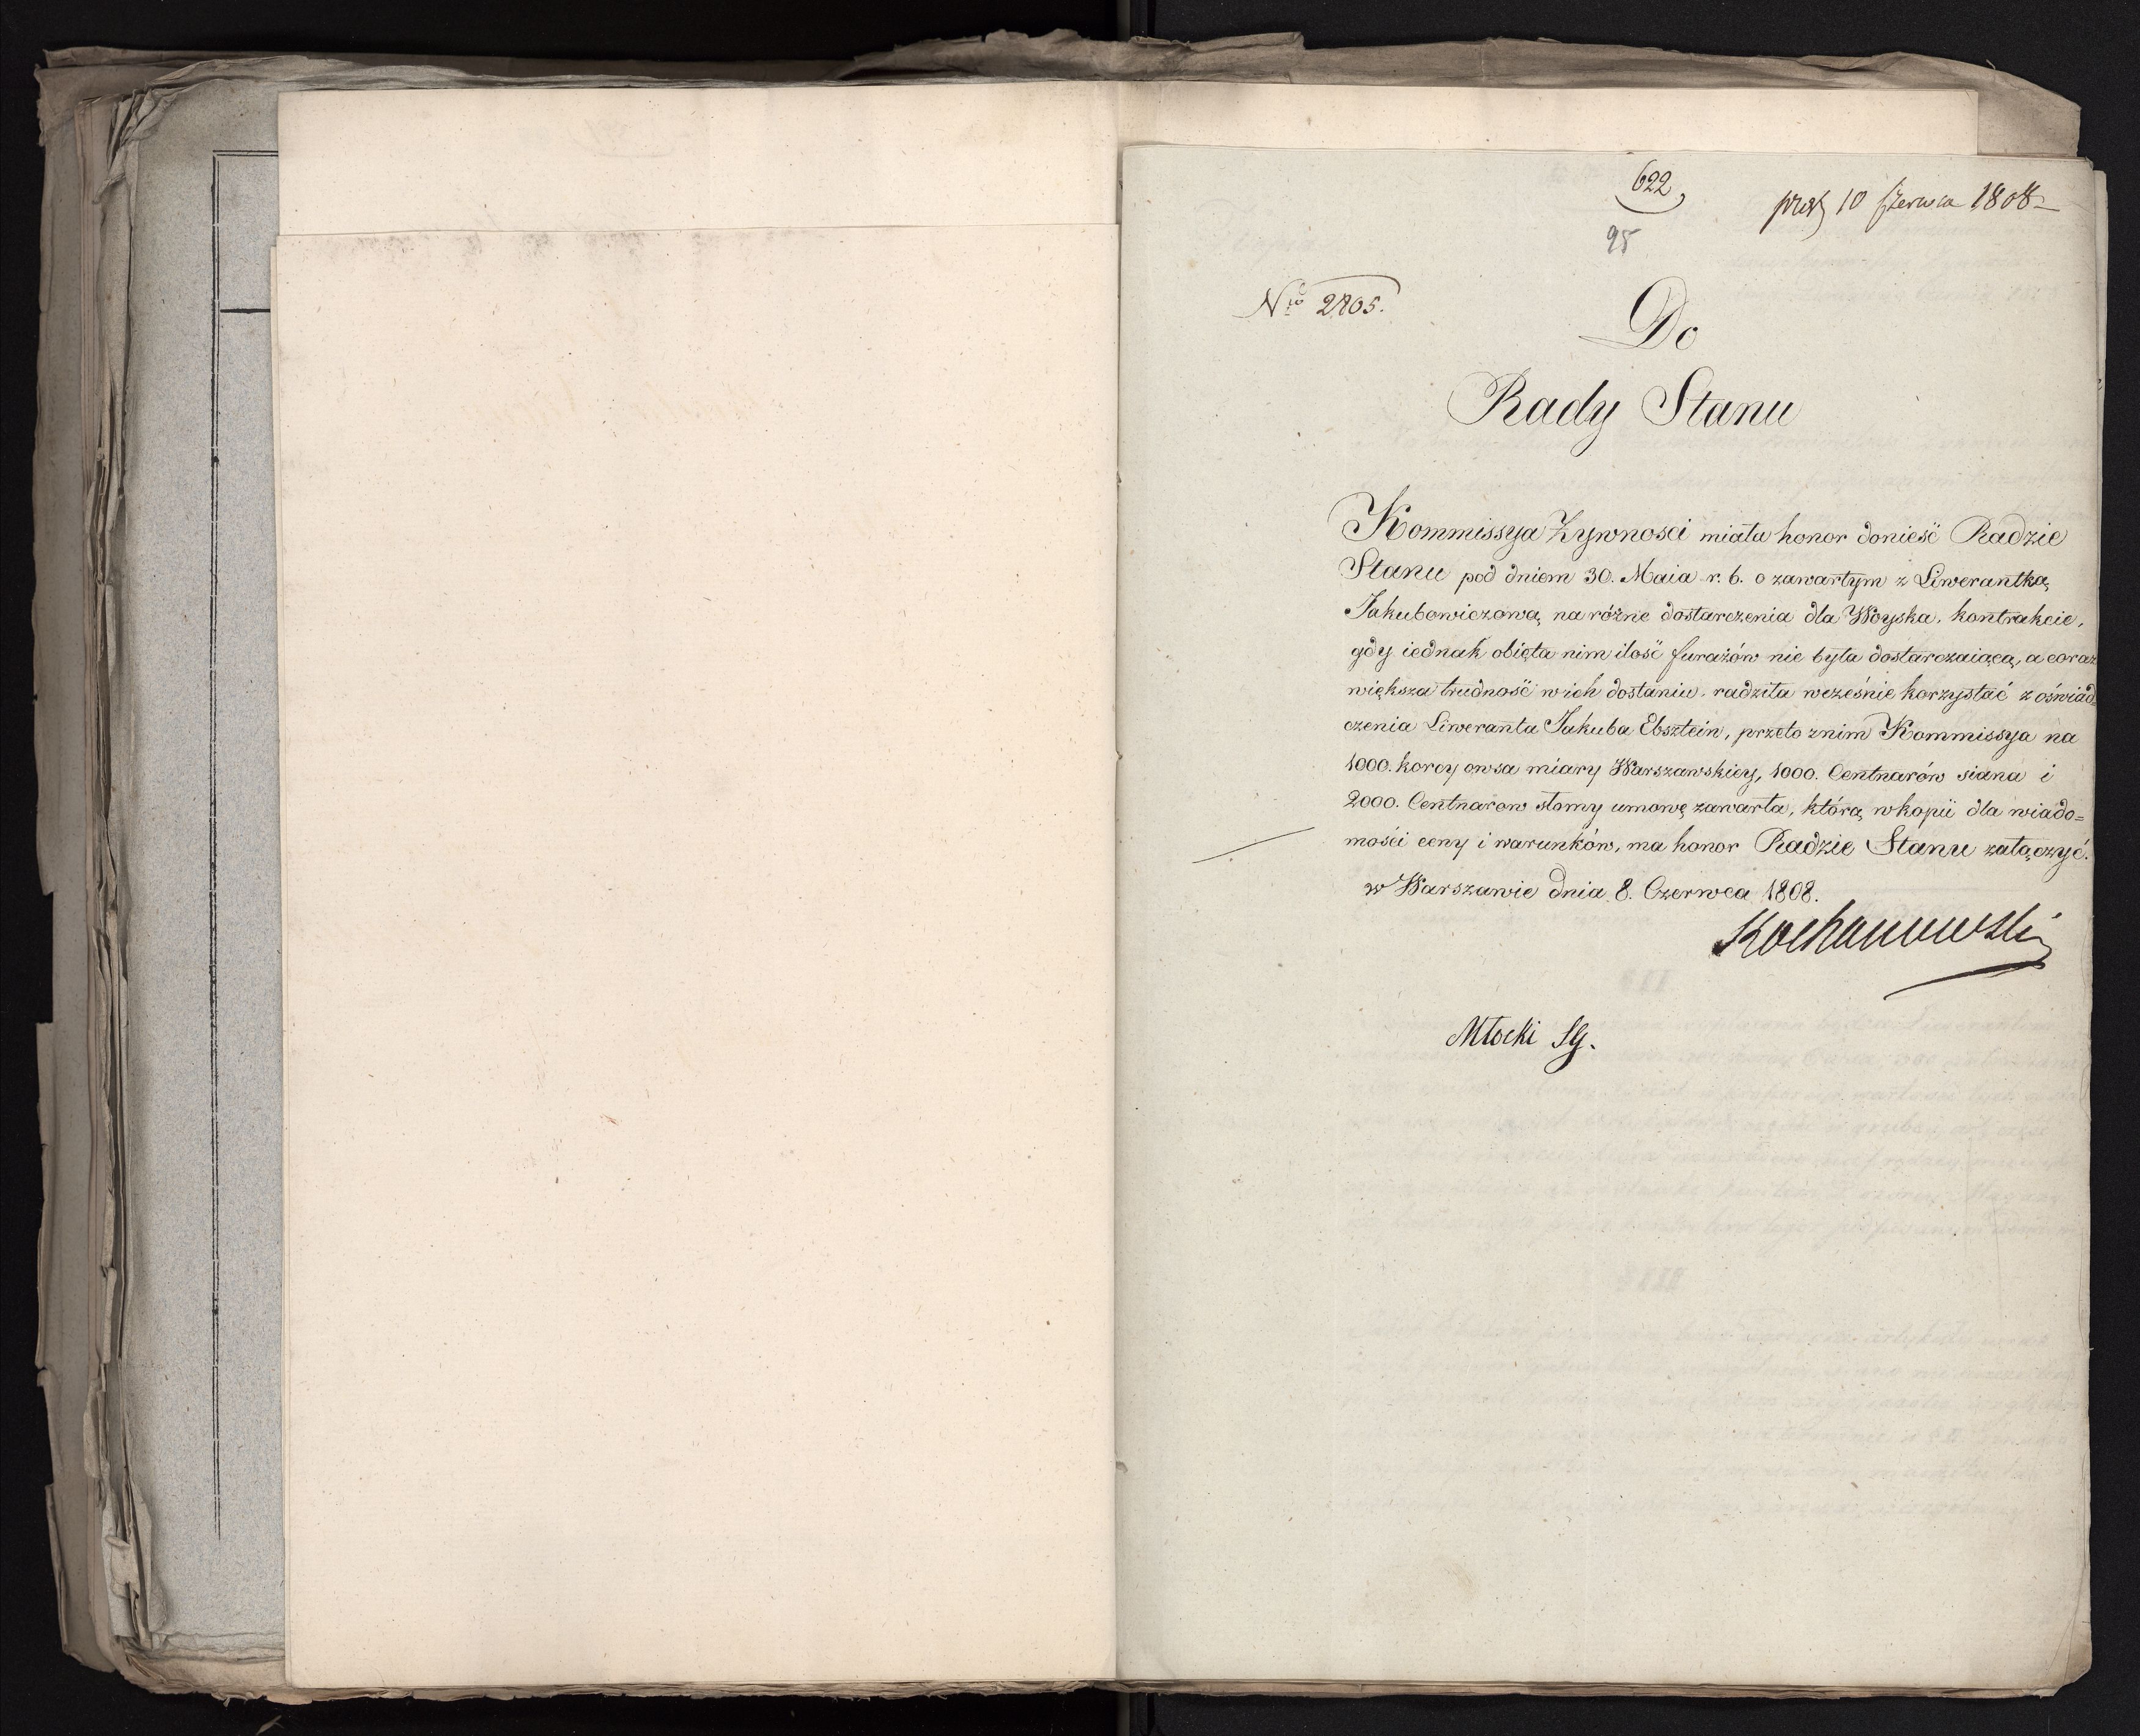 622
prez 10 Czerwca 1808
95
Nro 2805.
Do
Rady Stanu
Kommissya Żywnosci miała honor donieść Radzie
Stanu pod dniem 30. Maia r. b. o zawartym z Liwerantką
Jakubowiczową na różne dostarczenia dla Woyska, kontrakcie,
gdy iednak obięta nim ilość furażów nie była dostarczaiącą, a coraz
większa trudność w ich dostaniu, radziła wcześnie korzystać z oświad=
czenia Liweranta Jakuba Ebsztein, przeto z nim Kommissya na
1000. korcy owsa miary Warszawskiey, 1000. Centnarów siana i
2000. Centnarow słomy umowę zawarła, którą w kopii dla wiado=
mości ceny i warunków, ma honor Radzie Stanu załączyć.
w Warszawie dnia 8. Czerwca 1808.
Kochanowski
Młocki SG.